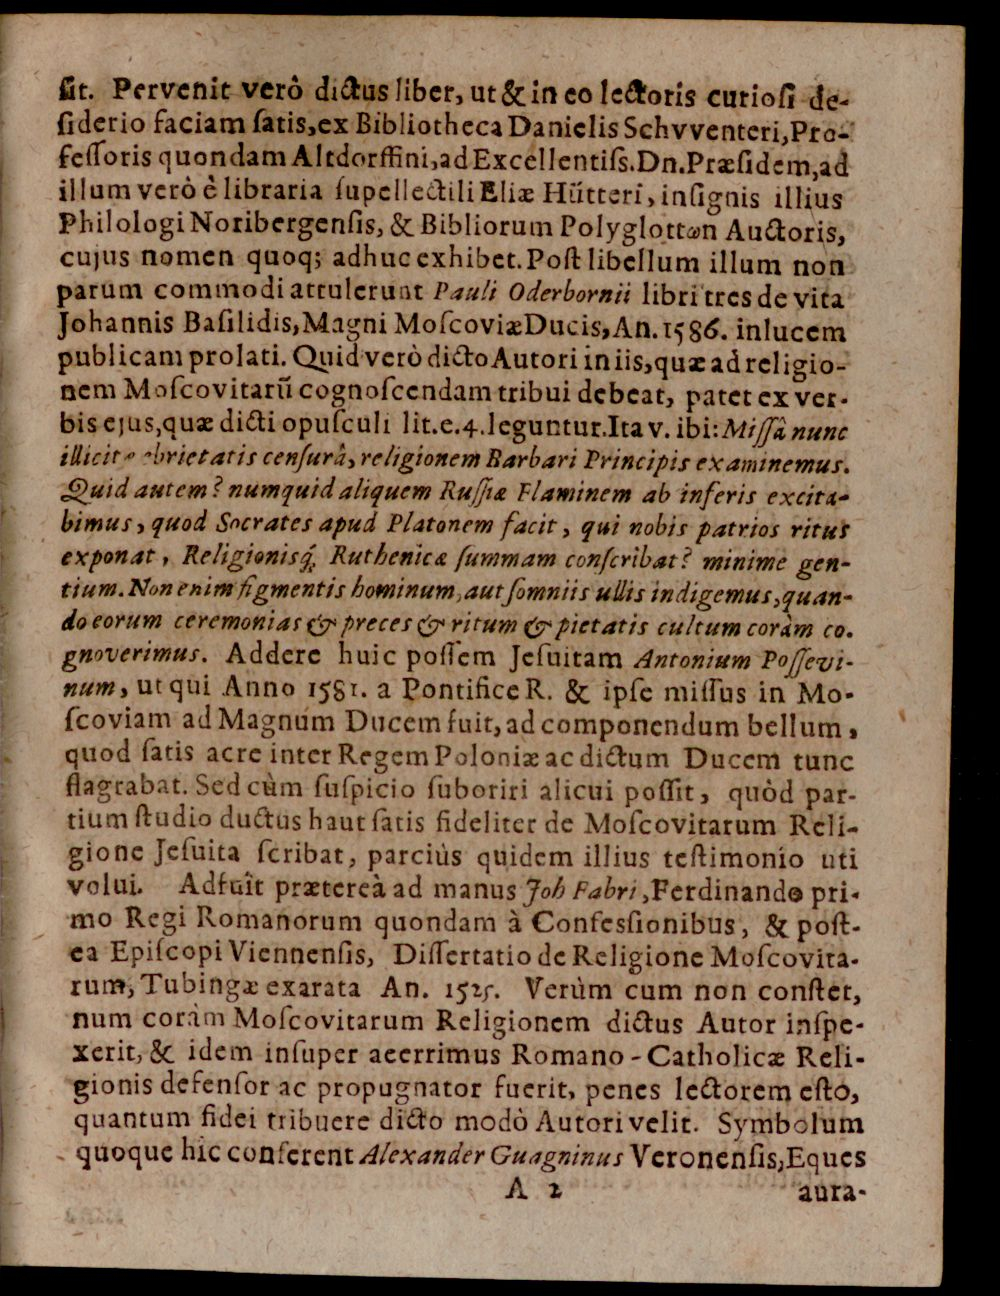 ſit. Pervenit verò dictus liber, ut & in eo lectoris curioſi de-
ſiderio faciam ſatis, ex Bibliotheca Danielis Schvventeri, Pro-
feſſoris quondam Altdorffini, ad Excellentiſs. Dn. Præſidem, ad
illum verò è libraria ſupellectili Eliæ Hütteri, inſignis illius
Philologi Noribergenſis, & Bibliorum Polyglottωn Auctoris,
cujus nomen quoq; adhuc exhibet. Poſt libellum illum non
parum commodi attulerunt Pauli Oderbornii libri tres de vita
Johannis Baſilidis, Magni Moſcoviæ Ducis, An. 1586. in lucem
publicam prolati. Quid verò dicto Autori in iis, quæ ad religio-
nem Moſcovitarũ cognoſcendam tribui debeat, patet ex ver-
bis ejus, quæ dicti opuſculi lit. e. 4. leguntur. Ita v. ibi: Miſſâ nunc
ebrietatis cenſurâ, religionem Barbari Principis examinemus.
Quid autem? numquid aliquem Ruſſiæ Flaminem ab inferis excita-
bimus, quod Socrates apud Platonem facit, qui nobis patrios ritus
exponat, Religionisq́; Ruthenicæ ſummam conſcribat? minime gen-
tium. Non enim figmentis hominum, aut ſomniis ullis indigemus, quan-
do eorum ceremonias & preces & ritum & pietatis cultum coràm co-
gnoverimus. Addere huic poſſem Jeſuitam Antonium Poſſevi-
num, ut qui Anno 1581. a Pontifice R. & ipſe miſſus in Mo-
ſcoviam ad Magnum Ducem fuit, ad componendum bellum,
quod ſatis acre inter Regem Poloniæ ac dictum Ducem tunc
flagrabat. Sed cùm ſuſpicio ſuboriri alicui poſſit, quòd par-
tium ſtudio ductus haut ſatis fideliter de Moſcovitarum Reli-
gione Jeſuita ſcribat, parciùs quidem illius teſtimonio uti
volui. Adfuît prætereà ad manus Joh Fabri, Ferdinando pri-
mo Regi Romanorum quondam à Confesſionibus, & poſt-
ea Epiſcopi Viennenſis, Diſſertatio de Religione Moſcovita-
rum, Tubingæ exarata An. 1525. Verùm cum non conſtet,
num coràm Moſcovitarum Religionem dictus Autor inſpe-
xerit, & idem inſuper acerrimus Romano-Catholicæ Reli-
gionis defenſor ac propugnator fuerit, penes lectorem eſto,
quantum fidei tribuere dicto modò Autori velit. Symbolum
quoque hic conferent Alexander Guagninus Veronenſis, Eques
A 2 aura-